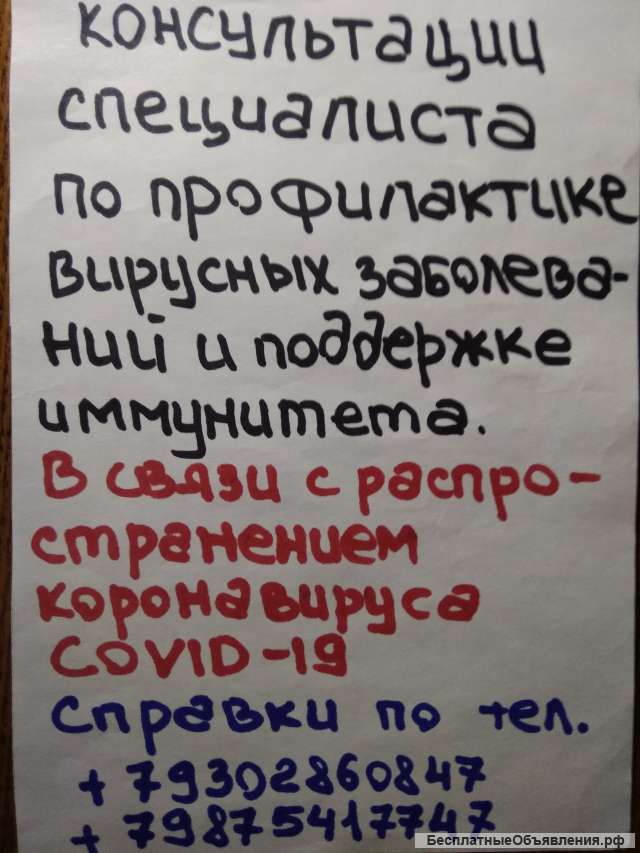 консультации
специалиста
по профилактике
вирусных заболева-
ний и поддержке
иммунитета.
В связи с распро-
странением
коронавируса
COVID-19
справки по тел.
+79302860847
+79875417747
БесплатныеОбъявления.рф